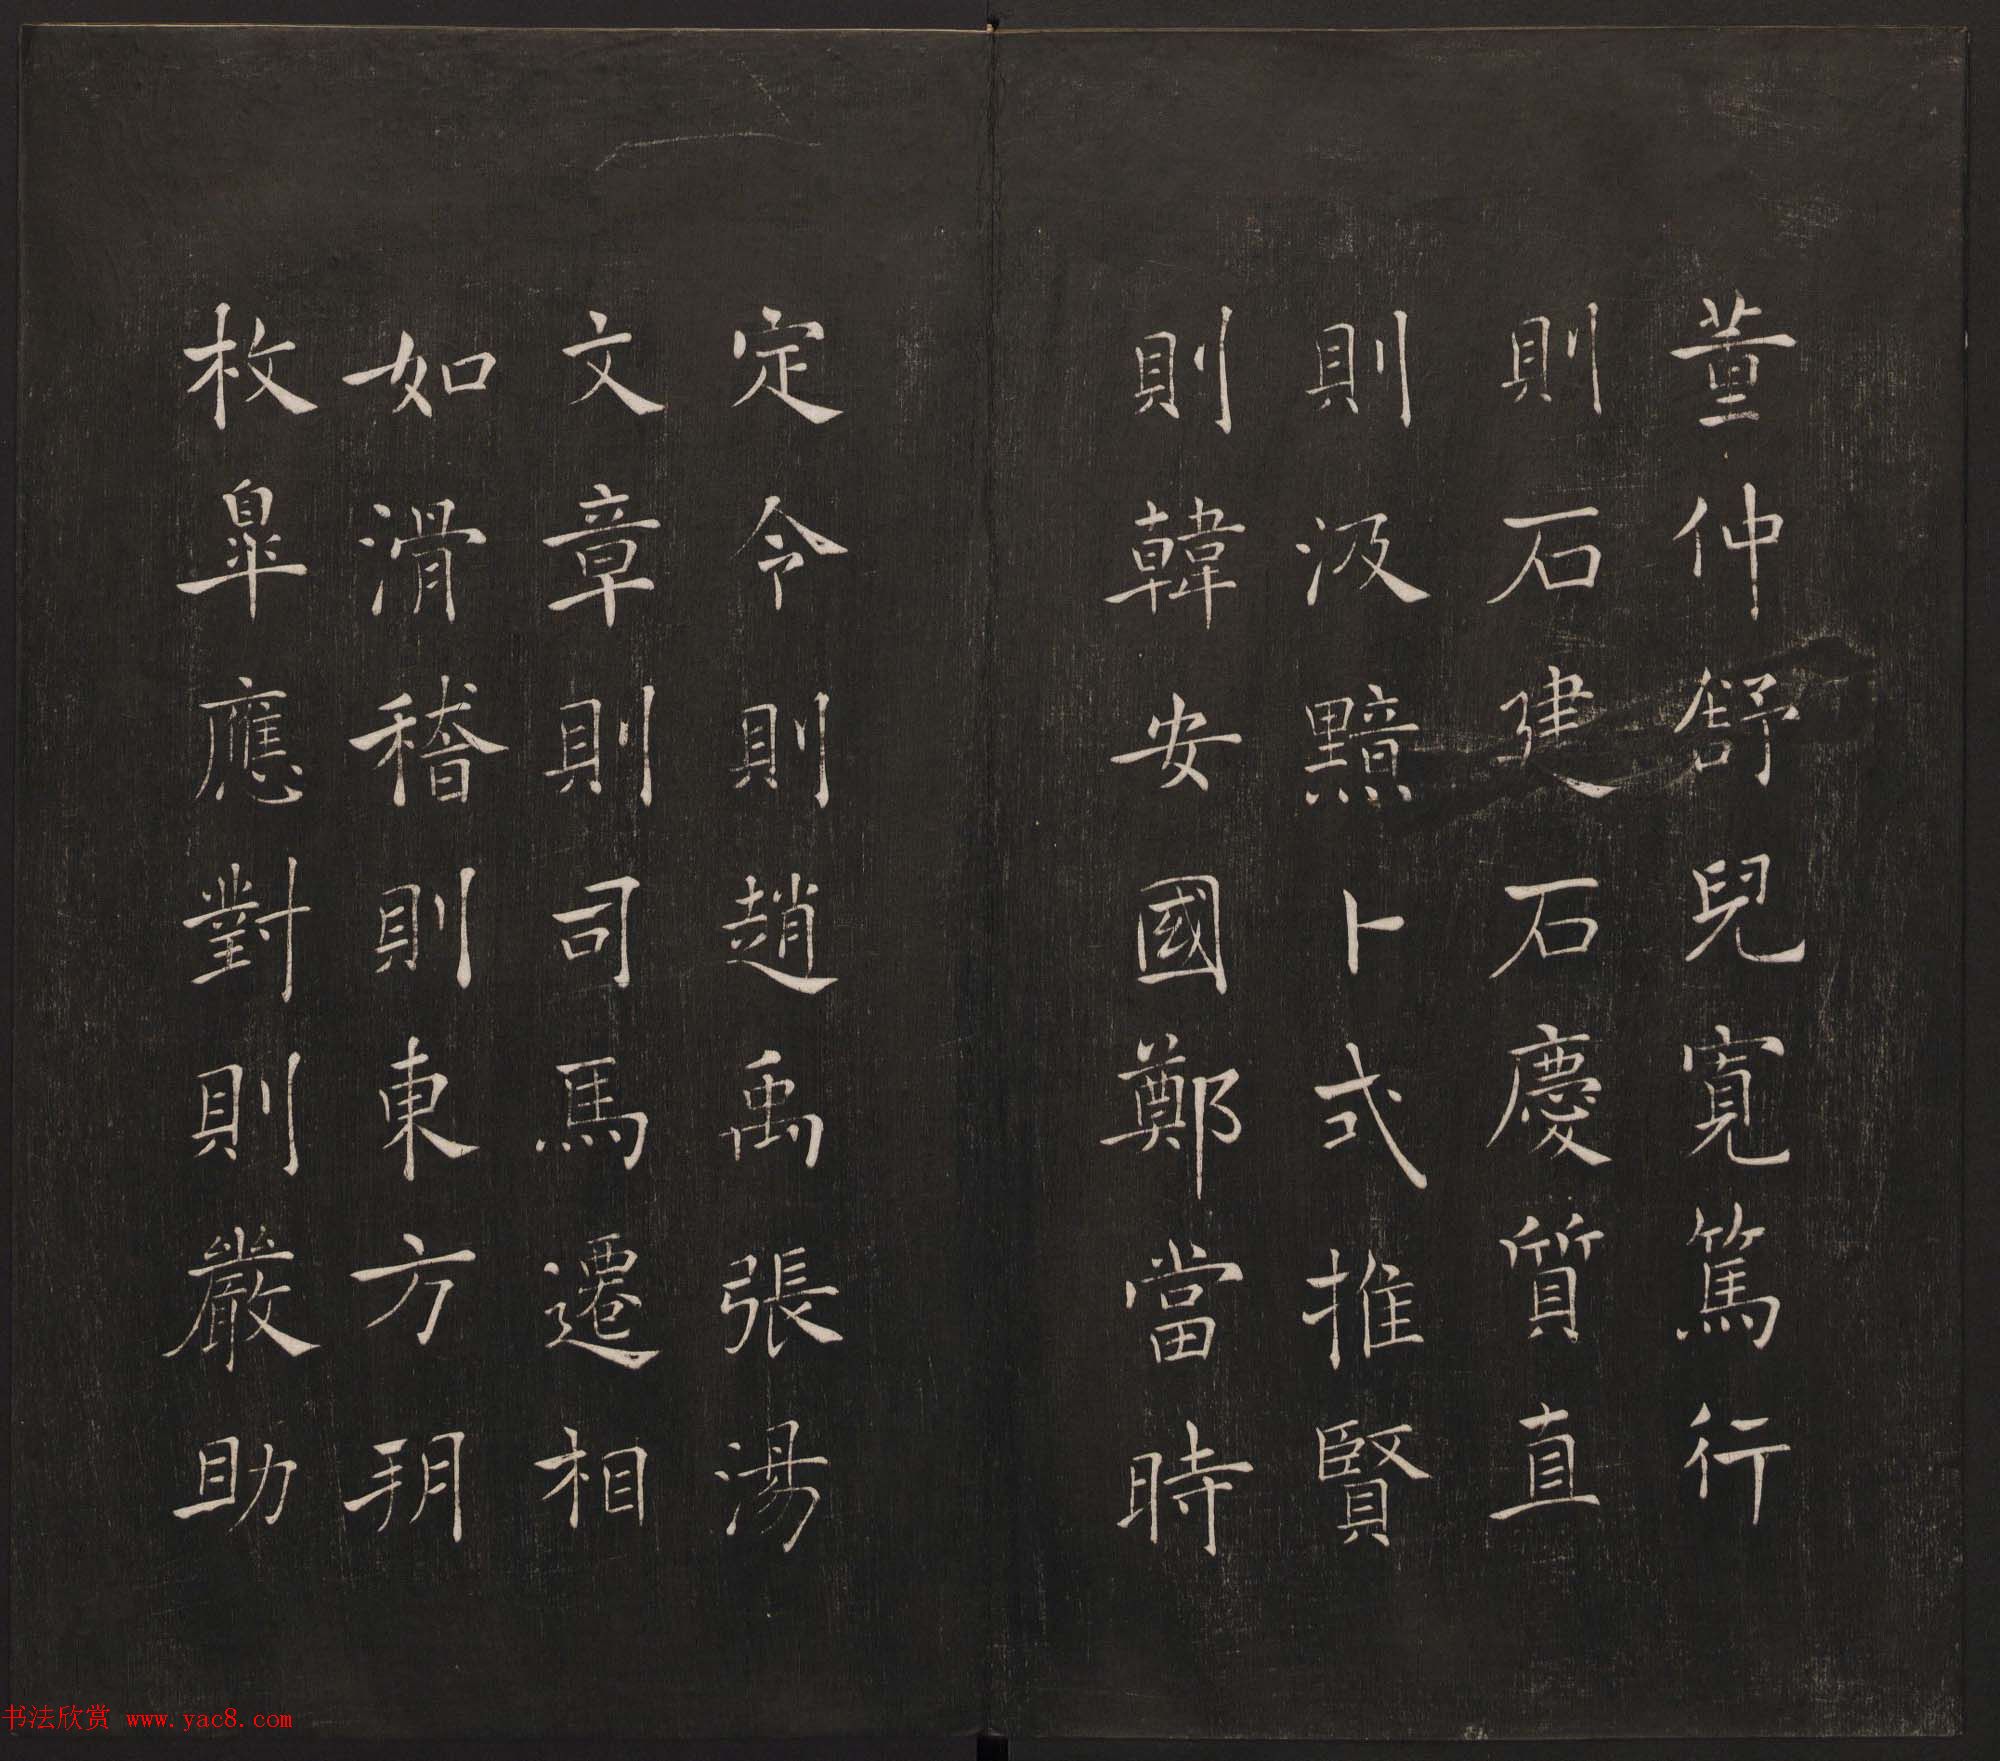 董仲舒兒寬篤行
則石建石慶質直
則汲黯卜式推賢
則韓安國鄭當時
定令則趙禹張湯
文章則司馬遷相
如滑稽則東方朔
枚皋應對則嚴助
书法欣赏 www.yac8.com